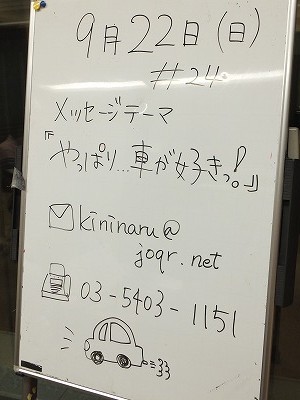 9月22日(日)
#24
メッセージテーマ
『やっぱり...車が好きっ。!』
kininaru@
joqr.net
03-5403-1151